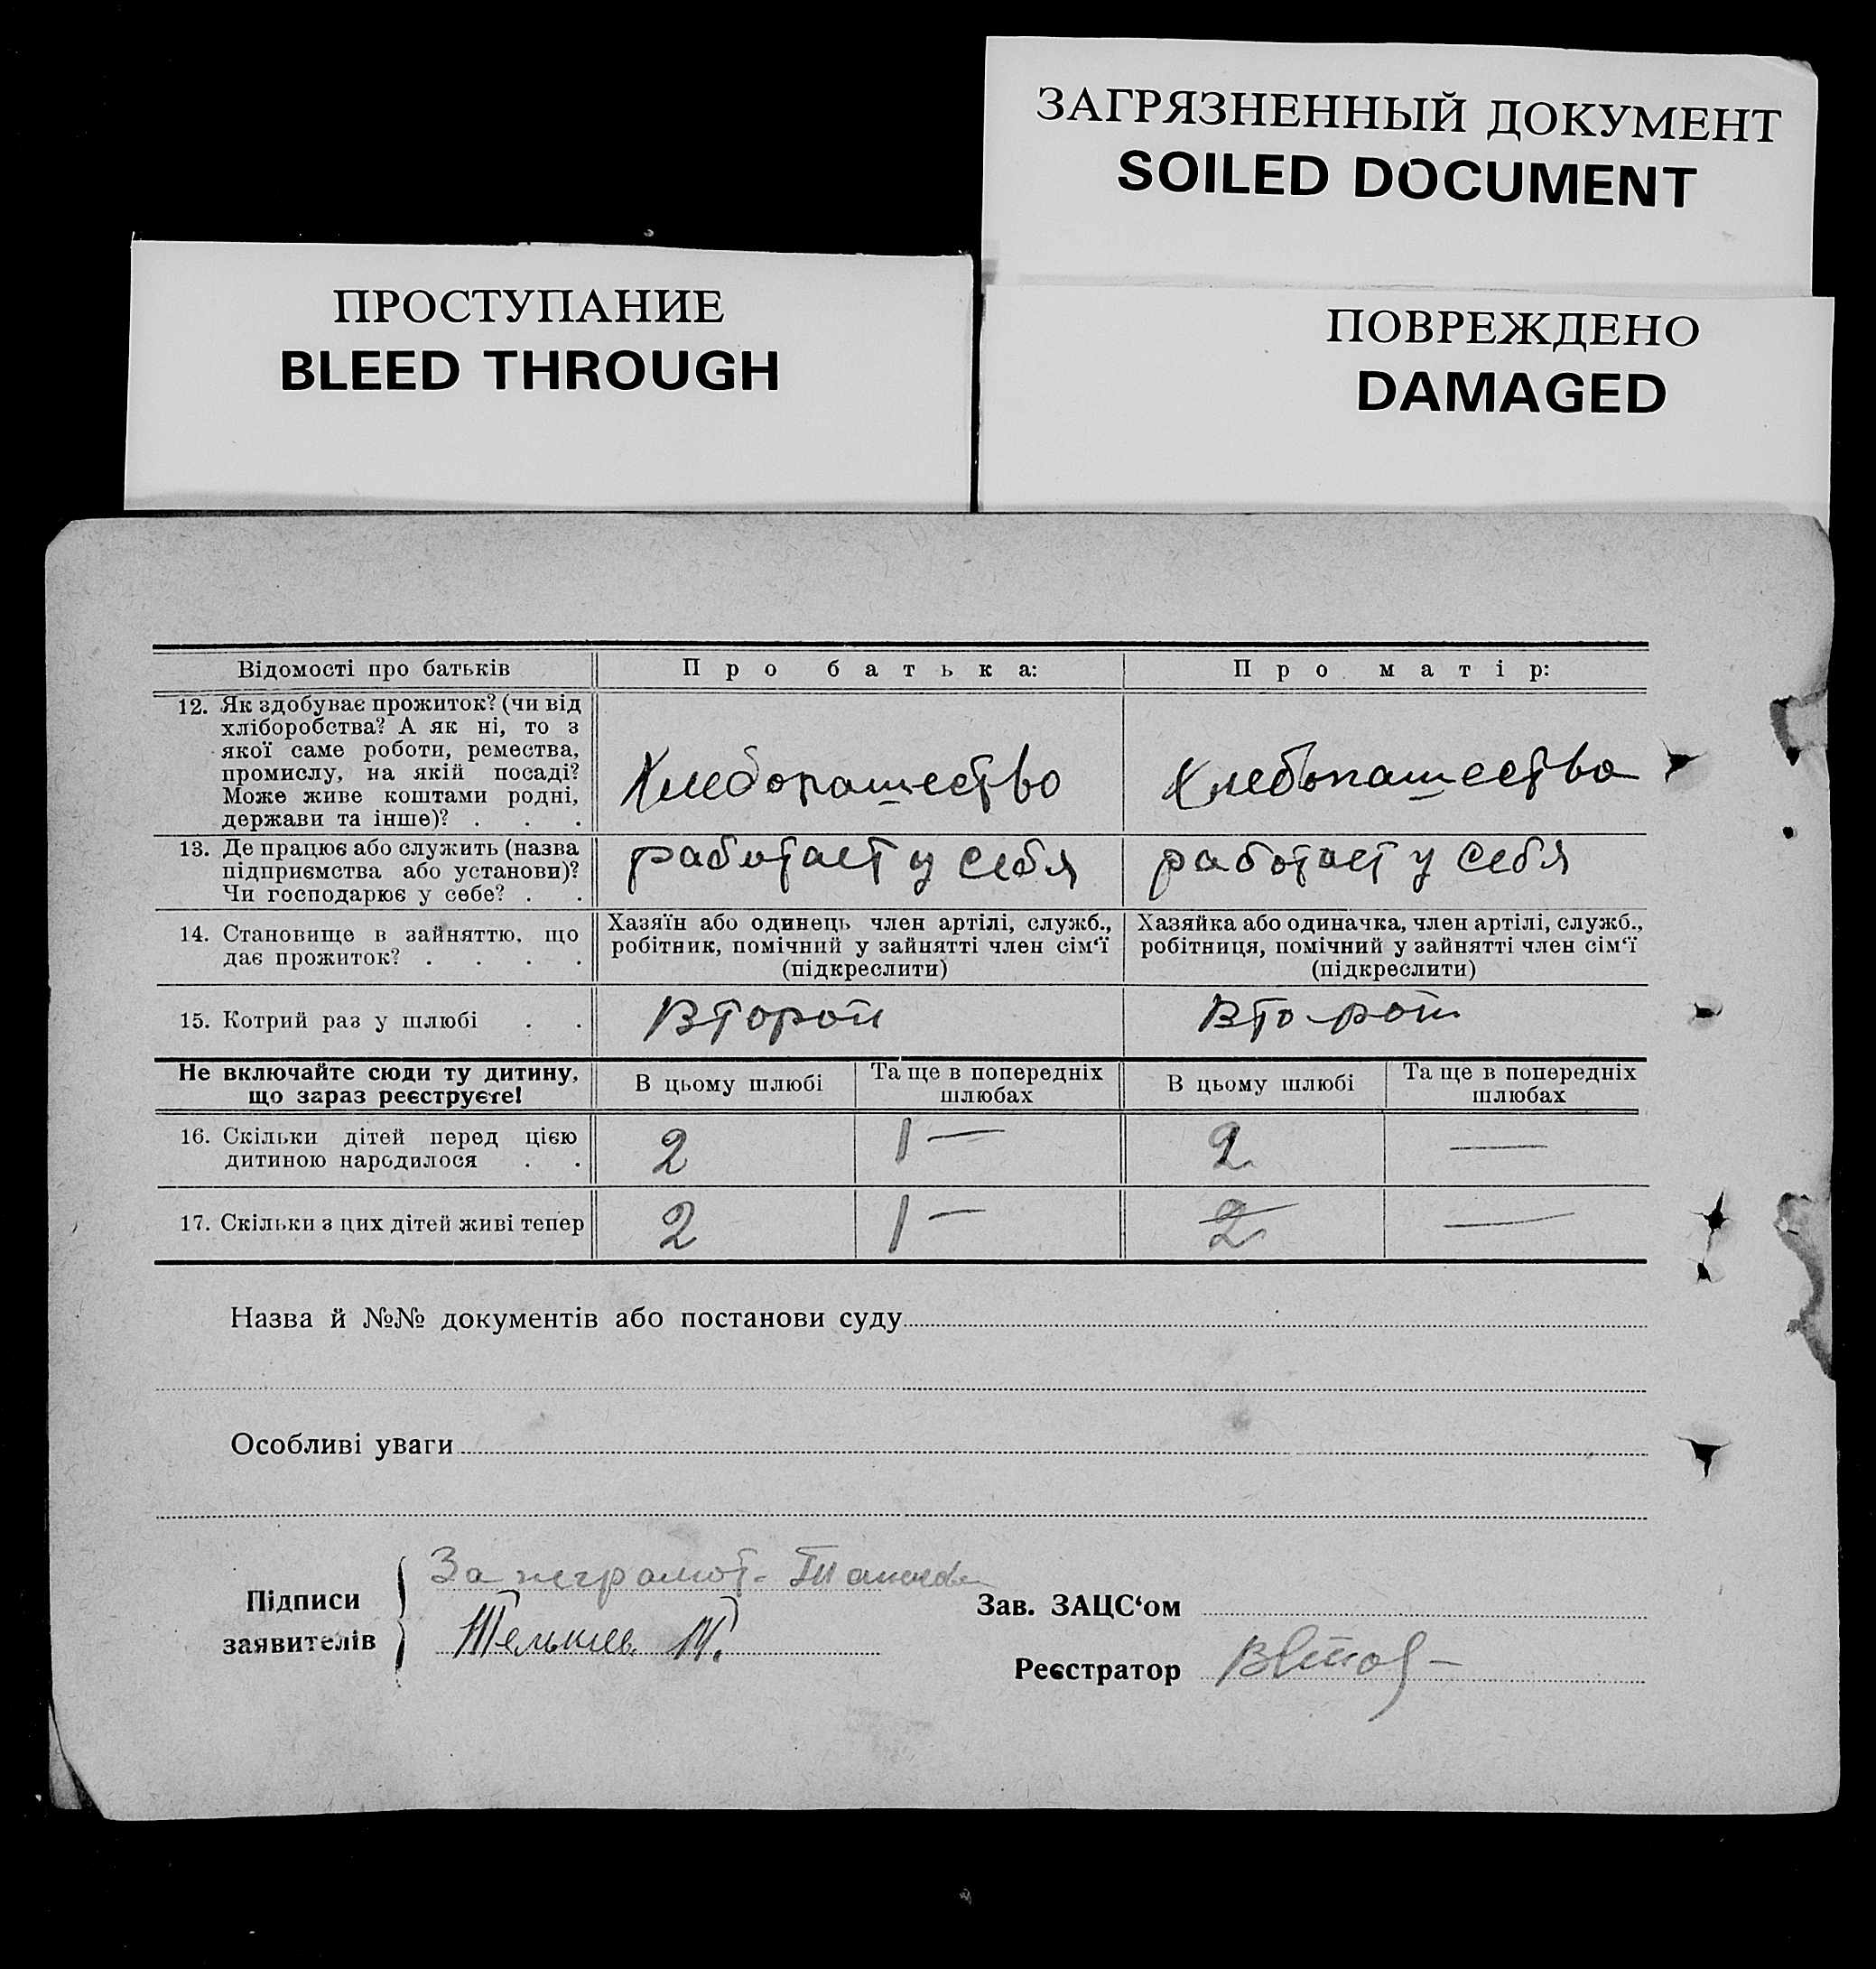 ЗАГРЯЗНЕННЫЙ ДОКУМЕНТ
SOILED DOCUMENT
ПРОСТУПАНИЕ
BLEED THROUGH
ПОВРЕЖДЕНО
DAMAGED
Відомості про батьків Про батька: Про матір:
12. Як здобуває прожиток? (чи від
хліборобства? А як ні, то з
якої саме роботи, ремества,
промислу, на якій посаді?
Може живе коштами родні,
держави та інше)? . . .
Хлебопашество Хлебопашество
13. Де працює або служить (назва
підприємства або установи)?
Чи господарює у себе? . .
работает у себя работает у себя
14. Становище в зайняттю, що
дає прожиток? . . . .
Хазяїн або одинець член артілі, служб.,
робітник, помічний у зайнятті член сім‘ї
(підкреслити)
Хазяйка або одиначка, член артілі, служб.,
робітниця, помічний у зайнятті член сім‘ї
(підкреслити)
15. Котрий раз у шлюбі . . Второй Второй
Не включайте сюди ту дитину,
що зараз реєструєте!
В цьому шлюбі
Та ще в попередніх
шлюбах
В цьому шлюбі
Та ще в попередніх
шлюбах
16. Скільки дітей перед цією
дитиною народилося . .
2 1 — 2 —
17. Скільки з цих дітей живі тепер 2 1 — 2 —
Назва й №№ документів або постанови суду
Особливі уваги
Підписи
заявителів
За неграмот.
Зав. ЗАЦС‘ом
Реєстратор